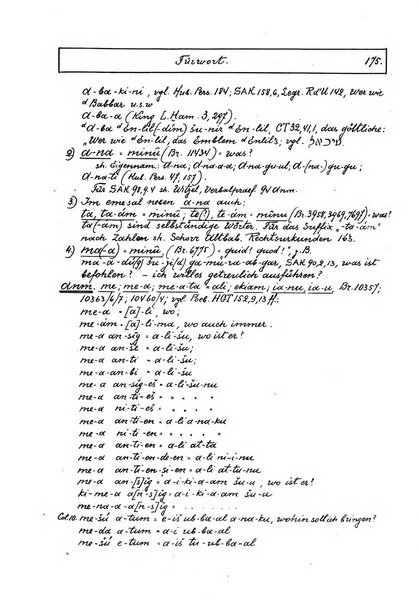 Fürwort. 175.
d-ba-ki-ni, vgl. Hub. Pers. 184; SAK 158,6, Legr. RdU 142, Wer wie
d Babbar u.s.w
d-ba-a (King L. Ham. 3, 297).
d ba d En-lil-(dím) šu-nir d En-lil, CT 32,41,1, das göttliche:
"Wer wie d Enlil, das Emblem d Enlils; vgl.
2) a-na = minû (Br. 11434) = was?
sh. Eigennam: d-na; d-na-a-a; d-na-gu-ul; d-(na) gu-gu;
d-na-ti (Hub. Pers. 47, 157).
Für SAK 92,9.4 sh. Witzel, Verbalpraef. 94 dnm.
3) Im emesal neben a-na auch:
ta, ta-ám = minû, te(!), te-ám = minu (Br. 3958, 3969, 7697) = was?
ta(-am) sind selbständige Wörter. Für das Suffix "-ta-ám"
nach Zahlen sh. Schorr Altbab. Rechtsurkunden 163.
4) ma(-a) = minû (Br. 6775) "quid! quod!", z. B.
SAK 90,2,13, was ist
befohlen? - ich will es getreulich ausführen?
dnm. me; me-a; me-a-ta = ali; ekiam; ia-nu, ia-u, Br. 10357;
10363/6/7; 10460/4; vgl Poeb. HGT 152,9,13 ff:
me-a = [a]-li, wo;
me-ám = [a]-li-ma, wo auch immer.
me-a an-sig = a-li-šu, wo ist er?
me-a an-še = a-li-šu;
me-a an-ti = a-li-šu;
me-a an-bi = a-li-šu
me-a an-sig-eš = a-li-šu-nu
me-a an-ti-eš = " " " "
me-a ni-ti-eš = " " " "
me-a an-ti-en = a-li a-na-ku
me-a ni-ti-en = " " " "
me-a an-ti-en = a-li at-ta
me-a an-ti-en-de-en = a-li ni-i-nu
me-a an-ti-en-si-en = a-li at-tu-nu
me-a an-[s]ig = a-i-ki-a-am šu-u, wo ist er?
ki-me-a a[n-s]ig = a-i-ki-a-am šu-u
me-na-a-a[n-s]ig =
Col. 10. me-šú a-tum = e-iš ub-ba-al a-na-ku, wohin soll ich bringen?
me-da a-tum = a-i ub-ba-al
me-šú e-tum = a-iš tu-ub-ba-al